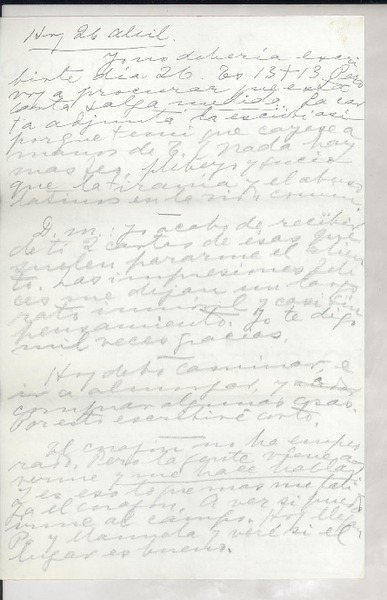 Hoy 26 Abril.
Yo no debería escri-
birte día 26. Es 13+13. Pero
voy a procurar que esta
carta salga medio. La car-
ta adjunta la escribí así
porque temí que cayese a
manos de E. Nada hay
mas feo, plebeyo y sucio
que la tiranía y el abuso
latinos en lo más común.
D. m.: Yo acabo de recibir
de ti 2 cartas de esas que
suelen pararme el alien-
to. Las impresiones feli-
ces me dejan un largo
rato inmóvil y casi sin
pensamiento. Yo te digo
mil veces gracias.
Hoy debo caminar, e
ir a almorzar, y a
comprar algunas cosas.
Por esto escribiré corto.
El corazón no ha empeo-
rado. Pero la gente viene a
verme y me hace hablar
y es eso lo que mas me fati-
ga el corazón. A ver si pue-
do irme al campo. Hoy
P. y Manuela y veré si el
lugar es bueno.